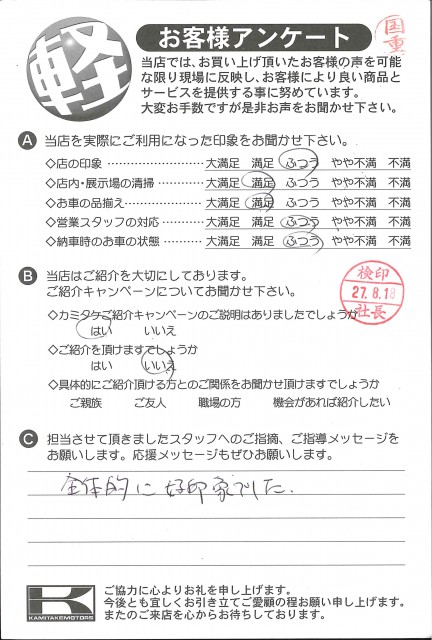 軽
お客様アンケート
国重
当店では、お買い上げ頂いたお客様の声を可能
な限り現場に反映し、お客様により良い商品と
サービスを提供する事に努めています。
大変お手数ですが是非お声をお聞かせ下さい。
A 当店を実際にご利用になった印象をお聞かせ下さい。
◇店の印象 …………………… 大満足 満足 ふつう やや不満 不満
◇店内・展示場の清掃………… 大満足 満足 ふつう やや不満 不満
◇お車の品揃え………………… 大満足 満足 ふつう やや不満 不満
◇営業スタッフの対応 ………… 大満足 満足 ふつう やや不満 不満
◇納車時のお車の状態 ………… 大満足 満足 ふつう やや不満 不満
B 当店はご紹介を大切にしてあります。
ご紹介キャンペーンについてお聞かせ下さい。
検印
27.8.18
社長
◇カミタケご紹介キャンペーンのご説明はありましたでしょうか
はい いいえ
◇ご紹介を頂けますでしょうか
はい いいえ
◇具体的にご紹介頂ける方とのご関係をお聞かせ頂けますでしょうか
ご親族 ご友人 職場の方 機会があれば紹介したい
C 担当させて頂きましたスタッフへのご指摘、ご指導メッセージを
お願いします。応援メッセージもぜひお願いします。
全体的に好印象でした.
KAMITAKEMOTORS
ご協力に心よりお礼を申し上げます。
今後とも宜しくお引き立てご愛顧の程お願い申し上げます。
またのご来店を心からお待ちしております。